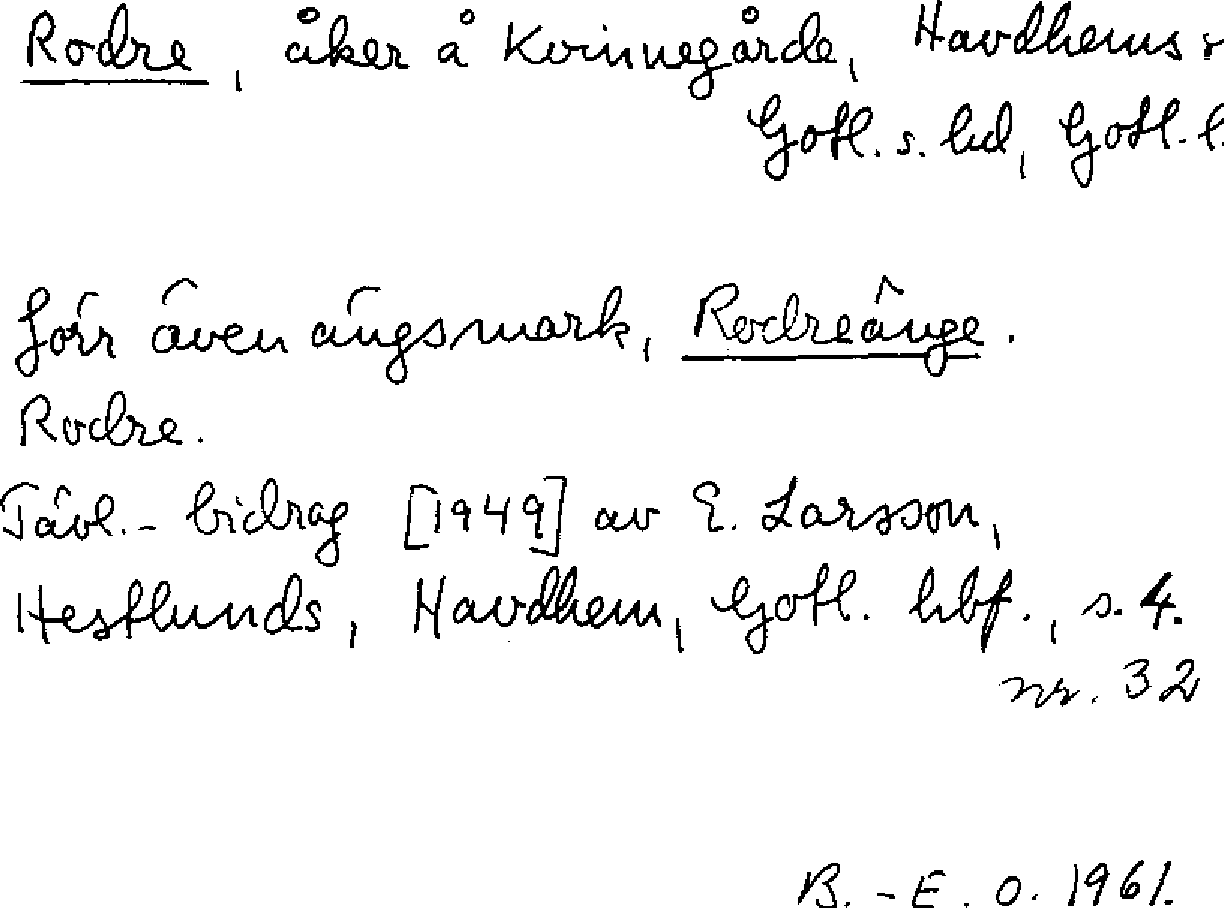 Rodre, åker å Kvinnegårde, Havdhems s
Gotl. s. hd, Gotl. l.
förr även ängsmark, Rodreänge.
Rodre.
Tävl.- bidrag [1949] av E. Larsson,
Hestlunds, Havdhem, Gotl. hbf., s. 4.
nr. 32
B. - E. O. 1961.